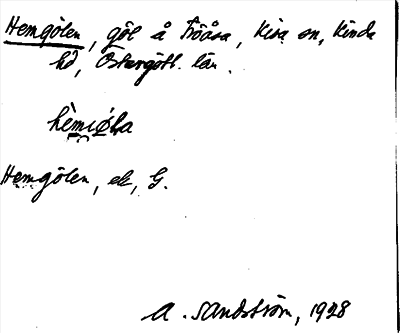 Hemgölen, göl å Fröåsa, Kisa sn, Kinda
hd, Östergötl. län.
hèmıøla
Hemgölen, ek, G.
A. Sandström, 1928